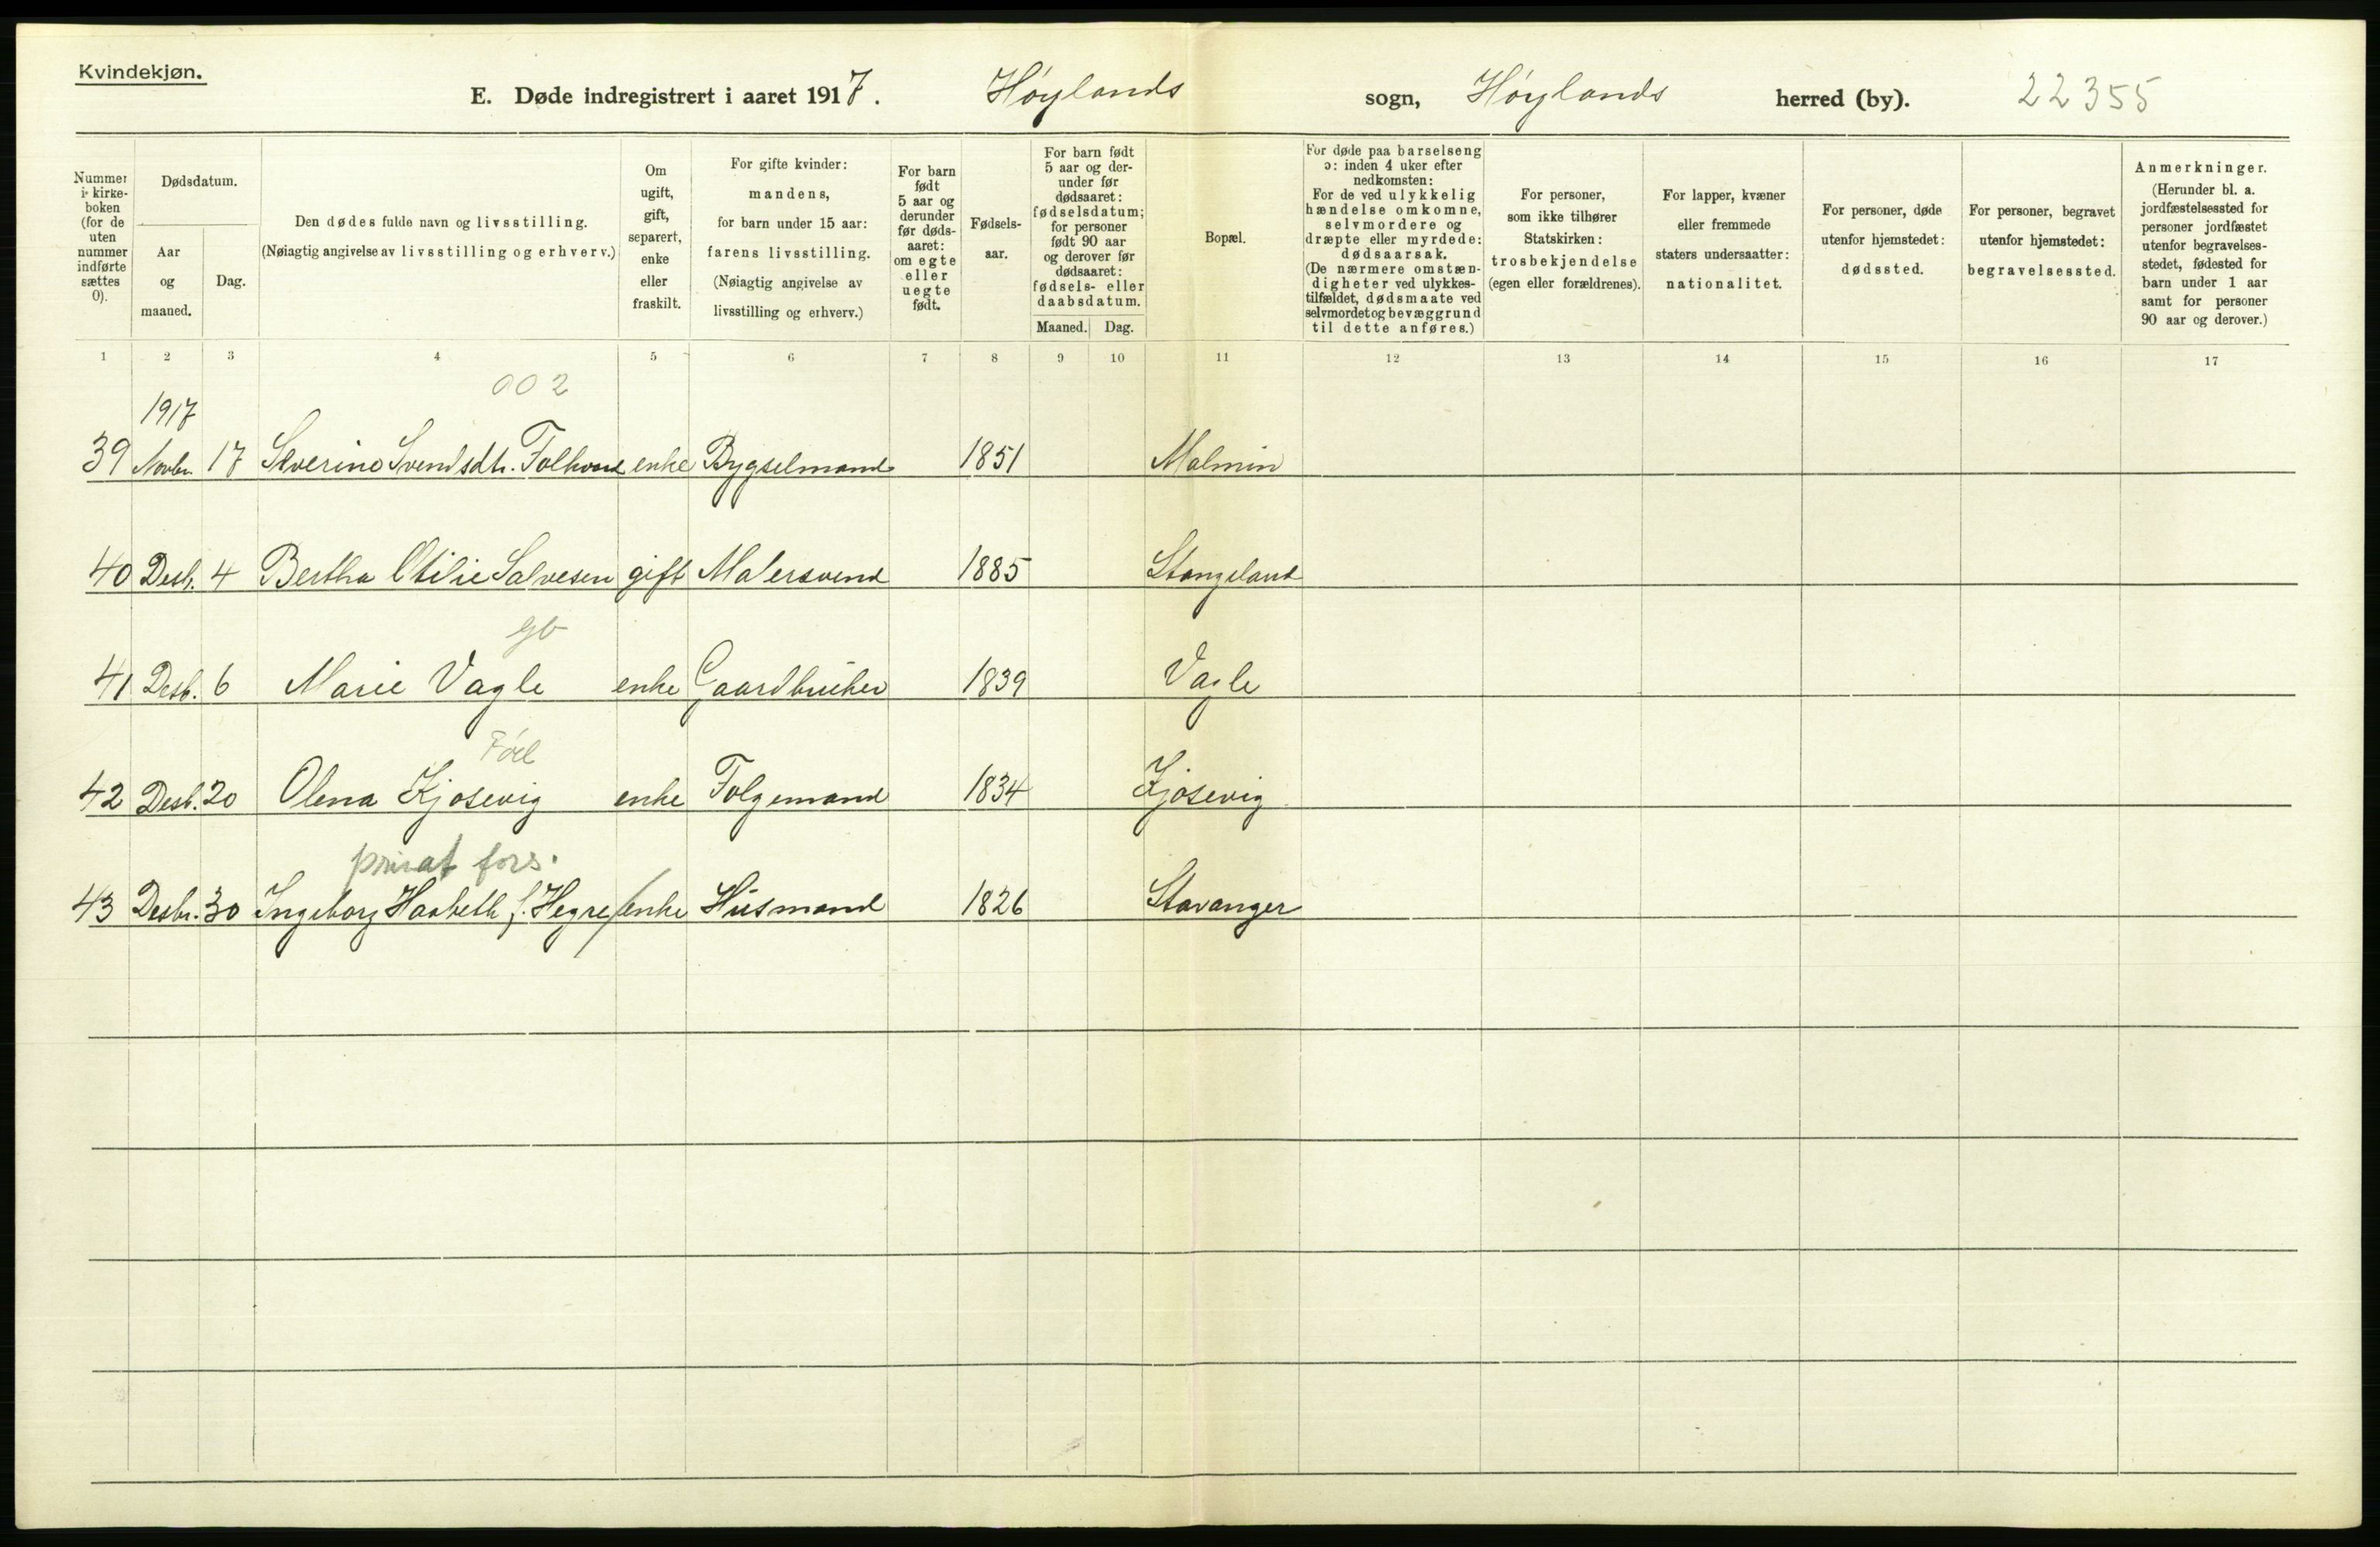 Kvindekjøn.
E. Døde indregistrert i aaret 1917. Høylands sogn, Høylands herred (by). 22355
Nummer i kirkeboken (for de uten nummer indførte sættes 0).
Dødsdatum.
Aar og maaned.
Dag.
Den dødes fulde navn og livsstilling.
(Nøiagtig angivelse av livsstilling og erhverv.)
Om ugift, gift, separert, enke eller fraskilt.
For gifte kvinder: mandens, for barn under 15 aar: farens livsstilling. (Nøiagtig angivelse av livsstilling og erhverv.)
For barn født 5 aar og derunder før dødsaaret: om egte eller uegte født.
Fødselsaar.
For barn født 5 aar og derunder før dødsaaret: fødselsdatum; for personer født 90 aar og derover før dødsaaret: fødsels- eller daabsdatum.
Maaned. Dag.
Bopæl.
For døde paa barselseng ɔ: inden 4 uker efter nedkomsten: For de ved ulykkelig hændelse omkomne, selvmordere og dræpte eller myrdede: dødsaarsak. (De nærmere omstændigheter ved ulykkestilfældet, dødsmaate ved selvmordet og bevæggrund til dette anføres.)
For personer, som ikke tilhører Statskirken: trosbekjendelse (egen eller forældrenes).
For lapper, kvæner eller fremmede staters undersaatter: nationalitet.
For personer, døde utenfor hjemstedet: dødssted.
For personer, begravet utenfor hjemstedet: begravelsessted.
Anmerkninger. (Herunder bl. a. jordfæstelsessted for personer jordfæstet utenfor begravelsesstedet, fødested for barn under 1 aar samt for personer 90 aar og derover.)
1 2 3 4 5 6 7 8 9 10 11 12 13 14 15 16 17
002
1917
39 Novbr. 17 Severine Svendsdtr. Folkvord enke Bygselmand 1851 Malmin
40 Desb. 4 Bertha Otilie Salvesen gift Malersvend 1885 Stangeland
gb
41 Desb. 6 Marie Vagle enke Gaardbruker 1839 Vagle
42 Desb. 20 Olena Kjosevig enke Folgemand 1834 Kjosevig
privat fors.
43 Desbr. 30 Ingeborg Haabeth f. Hegre enke Husmand 1826 Stavanger